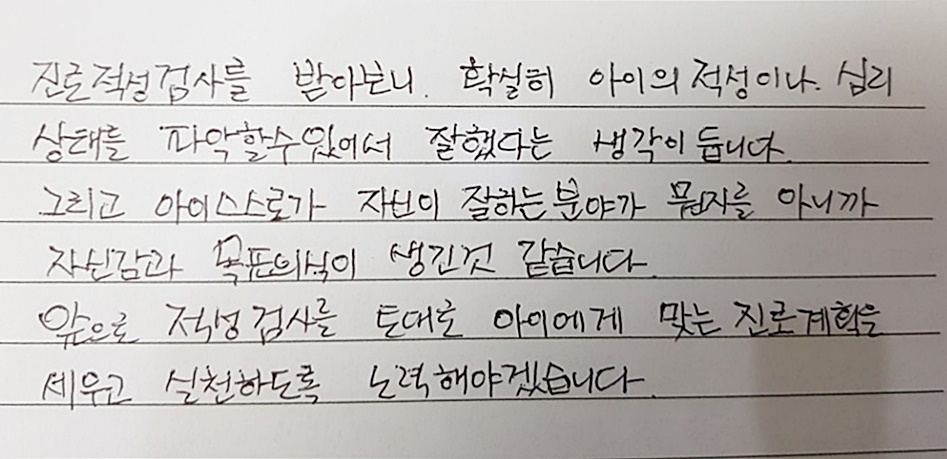 진로적성검사를 받아보니. 확실히 아이의 적성이나. 심리
상태를 파악할수있어서 잘했다는 생각이 듭니다.
그리고 아이스스로가 자신이 잘하는 분야가 뭔지를 아니까
자신감과 목표의식이 생긴것 같습니다.
앞으로 적성검사를 토대로 아이에게 맞는 진로계획을
세우고 실천하도록 노력해야겠습니다.